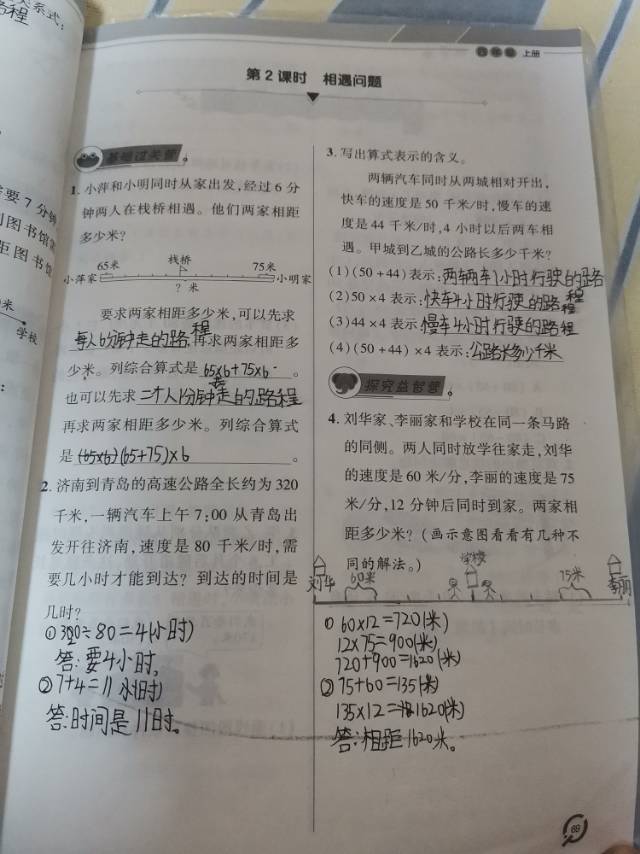 四年级 上册
第2课时 相遇问题
基础过关管
1. 小萍和小明同时从家出发,经过6分
钟两人在栈桥相遇。他们两家相距
多少米?
65米 栈桥 75米
小萍家 小明家
? 米
要求两家相距多少米,可以先求
每人6分钟走的路程,再求两家相距多
少米。列综合算式是 65×6+75×6 。
也可以先求 二个人1分钟走的路程
再求两家相距多少米。列综合算式
是 (65+75)×6 。
2. 济南到青岛的高速公路全长约为320
千米,一辆汽车上午7:00从青岛出
发开往济南,速度是80千米/时,需
要几小时才能到达? 到达的时间是
几时?
①320÷80=4(小时)
答:要4小时,
②7+4=11(小时)
答:时间是11时。
3. 写出算式表示的含义。
两辆汽车同时从两城相对开出,
快车的速度是50千米/时,慢车的速
度是44千米/时,4小时以后两车相
遇。甲城到乙城的公路长多少千米?
(1)(50+44)表示:两辆车1小时行驶的路
(2)50×4表示:快车4小时行驶的路程
(3)44×4表示:慢车4小时行驶的路程
(4)(50+44)×4表示:公路长多少千米
探究益智管
4. 刘华家、李丽家和学校在同一条马路
的同侧。两人同时放学往家走,刘华
的速度是60米/分,李丽的速度是75
米/分,12分钟后同时到家。两家相
距多少米?(画示意图看看有几种不
同的解法。)
学校
刘华 60米 75米 李丽
①60×12=720(米)
12×75=900(米)
720+900=1620(米)
②75+60=135(米)
135×12=1620(米)
答:相距1620米。
69
要7分钟
图书馆
图书馆
米
学校